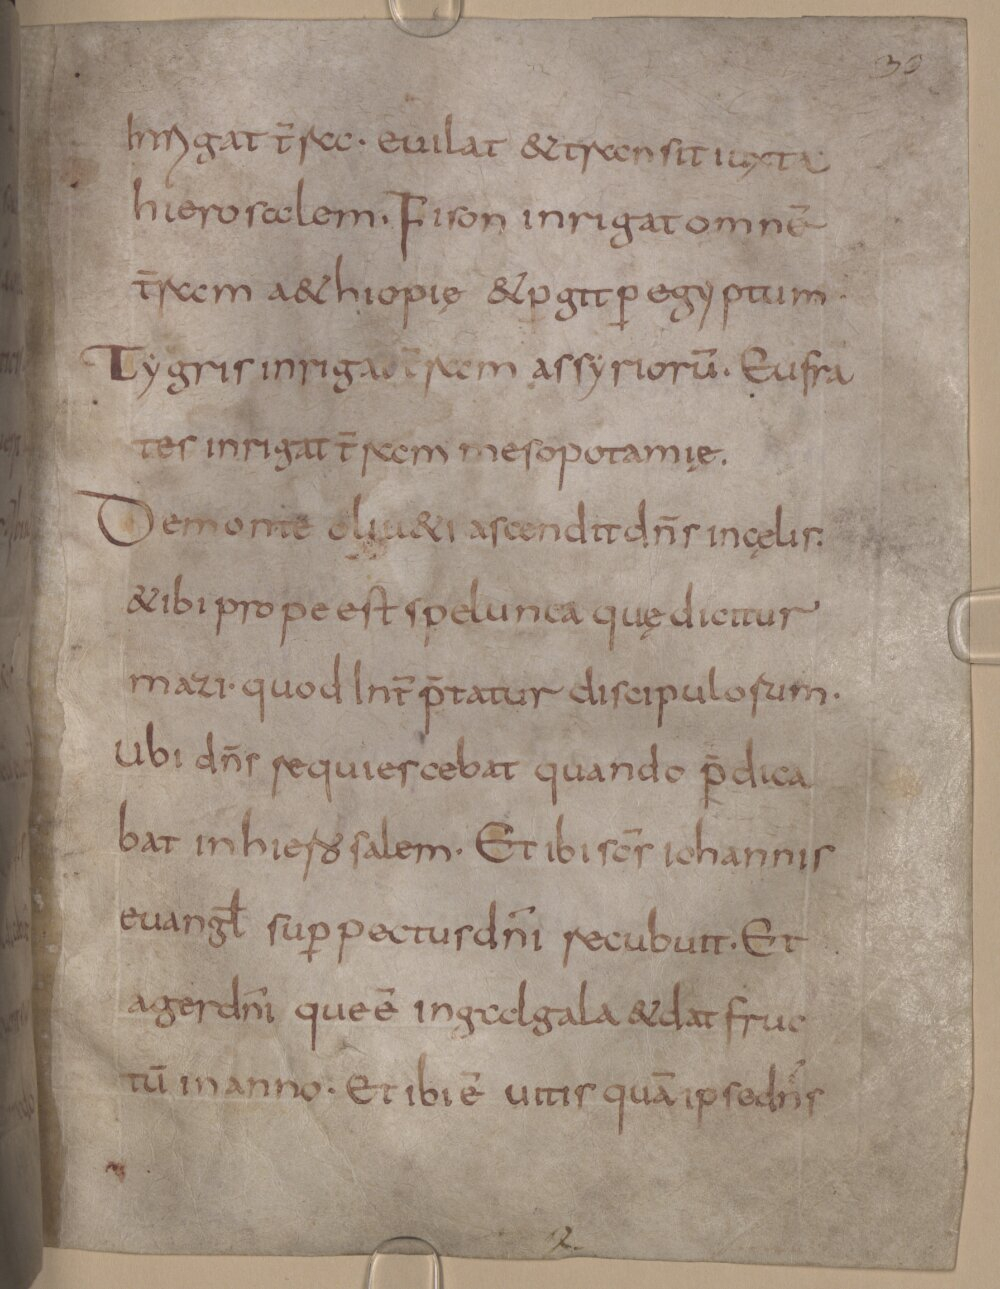 30
Inrigat t̄rac· euilat &transit iuxta
hierosoclem. Fison inrigat omnē
t̄ram a&hiopię &pgit p̱ egyptum·
Tygris inrigat t̄ram assyriorū. Eufra
tes inrigat t̄ram mesopotamię.
De monte oliu&i ascendit dn̄s in cęlis.
&ibi prope est spelunca quę dicitur
mazi· quod Int̄ p̄tatur discipulorum.
Ubi dn̄s requiescebat quando p̄dica
bat in hierusalem. Et ibi scs̄ iohannis
euangl̄ sup̱ pectus dn̄i recubuit. Et
ager dn̄i que ē in galgala &dat fruc
tū in anno. Et ibi ē uitis quā ipse dn̄s